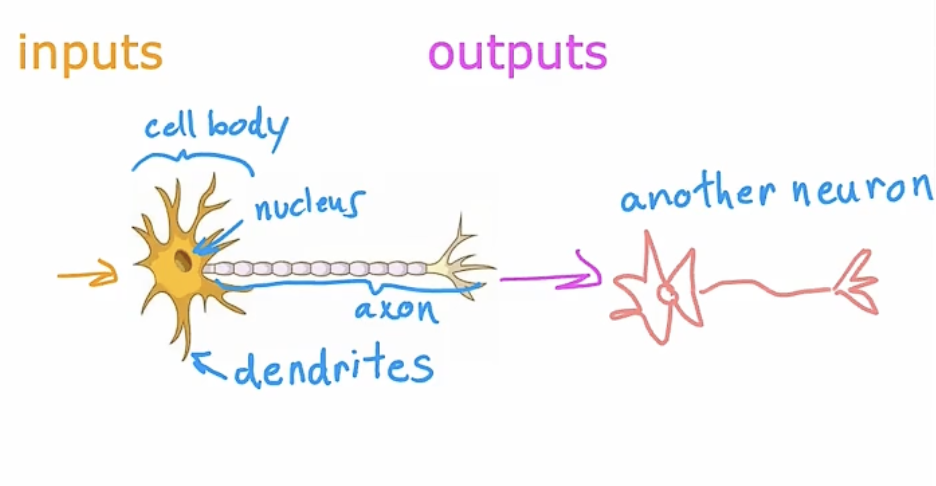 inputs
outputs
cell body
nucleus
another neuron
axon
dendrites